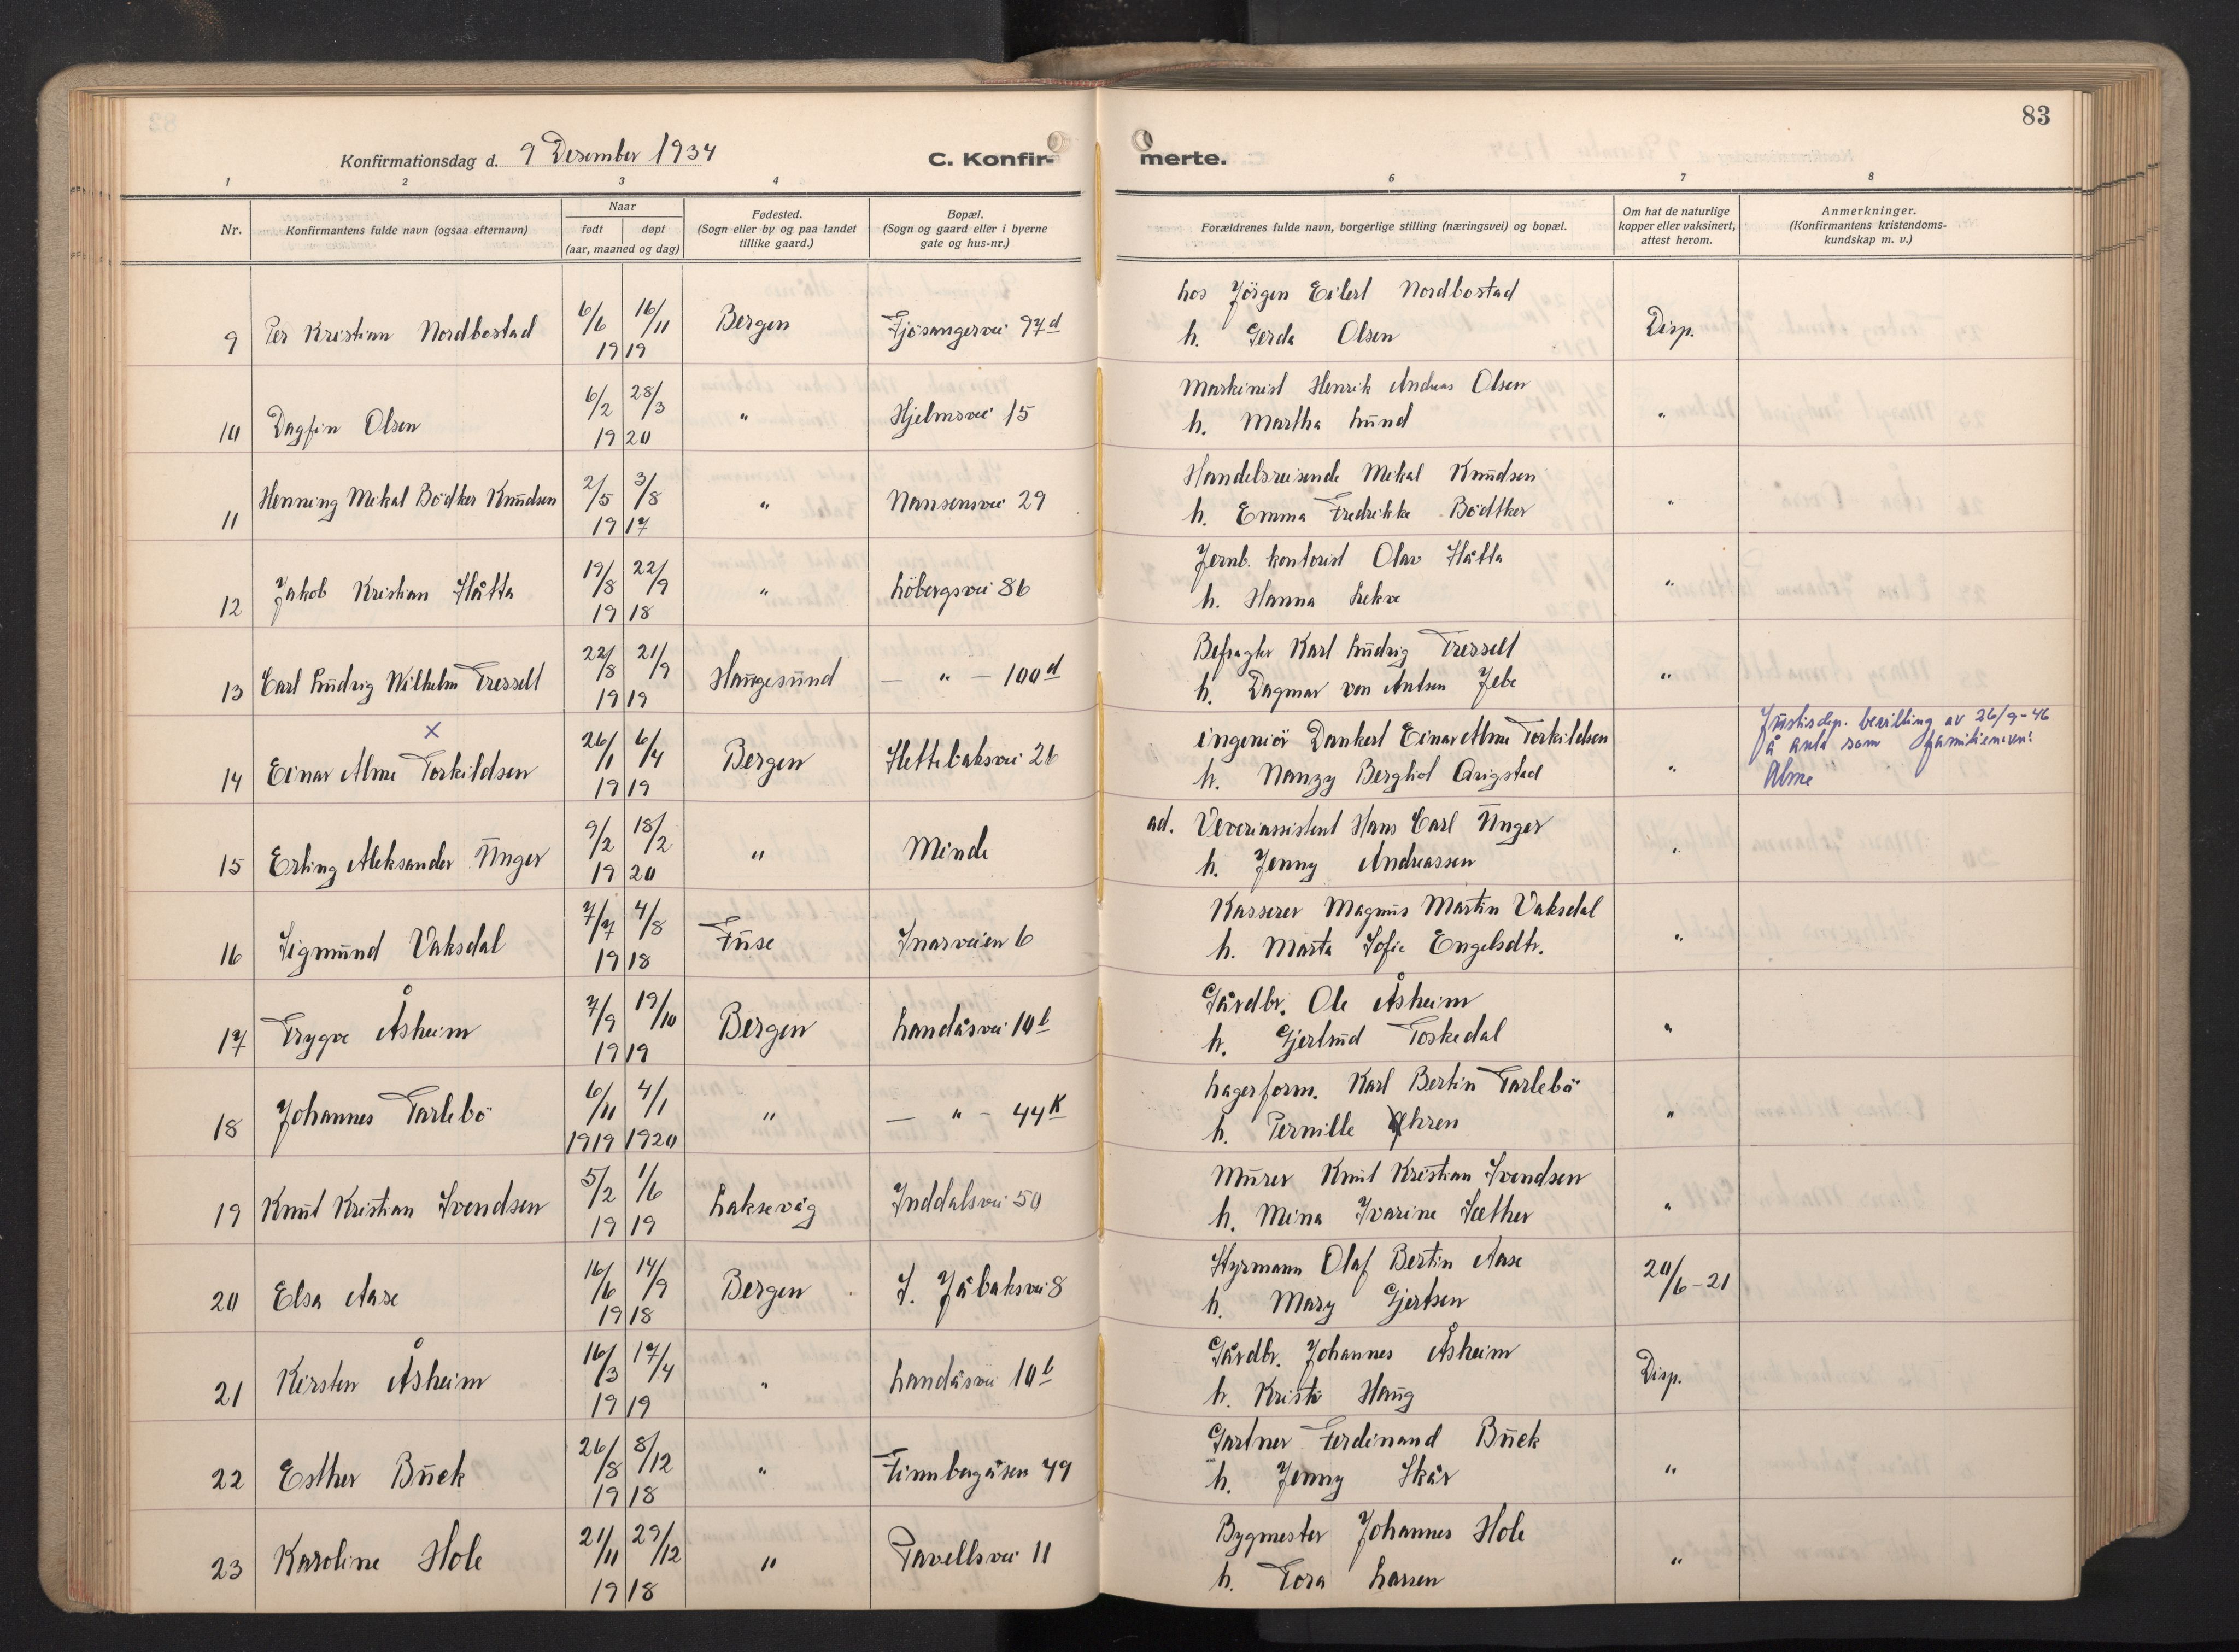 83
Konfirmationsdag d. 9 Desember 1934
C. Konfir-
merte.
1 2 3 4 6 7 8
Nr. Konfirmantens fulde navn (ogsaa efternavn)
Naar
født døpt
(aar, maaned og dag)
Fødested.
(Sogn eller by og paa landet
tillike gaard.)
Bopæl.
(Sogn og gaard eller i byerne
gate og hus-nr.)
Forældrenes fulde navn, borgerlige stilling (næringsvei) og bopæl.
Om hat de naturlige
kopper eller vaksinert,
attest herom.
Anmerkninger.
(Konfirmantens kristendoms-
kundskap m. v.)
9 Per Kristian Nordbostad 6/6 16/11 1919 Bergen Fjösangervei 97d
hos Jörgen Eilert Nordbostad
h. Gerda Olsen Disp.
10 Dagfin Olsen 6/2 28/3 1920 " Hjelmsvei 15
Maskinist Henrik Andreas Olsen
h. Martha Lund "
11 Henning Mikal Bödker Knudsen 2/5 3/8 1917 " Nansensvei 29
Handelsreisende Mikal Knudsen
h. Emma Fredrikke Bödtker "
12 Jakob Kristian Håtta 19/8 22/9 1918 " Löbergsvei 86
Jernb. kontorist Olav Håtta
h. Hanna Lekve "
13 Carl Ludvig Wilhelm Tresselt 22/8 21/9 1919 Haugesund — " — 100d
Befragter Karl Ludvig Tresselt
h. Dagmar von Jebe "
x
14 Einar Alme Torkildsen 26/1 6/4 1919 Bergen Slettebaksvei 26
ingeniör Dankert Einar Alme Torkildsen
h. Nanzy Berghol "
Justisdep. bevilling av 26/9-46
å anta som familienavn:
Alme
15 Erling Aleksander Unger 9/2 18/2 1920 " Minde
ad. Veveriassistent Hans Carl Unger
h. Jenny Andreassen "
16 Sigmund Vaksdal 7/7 4/8 1918 Fuse Ivarveien 6
Kasserer Magnus Martin Vaksdal
h. Marta Sofie Engelsdtr. "
17 Trygve Åsheim 7/9 19/10 1919 Bergen Landåsvei 10b
Gårdbr. Ole Åsheim
h. Gjertrud Toskedal "
18 Johannes Tarlebö 6/11 4/1 1919 1920 " — " — 44K
Lagerform. Karl Bertin Tarlebö
h. Pernille "
19 Knut Kristian Svendsen 5/2 1/6 1919 Laksevåg Inddalsvei 50
Murer Knut Kristian Svendsen
h. Mina Ivarine Sæther "
20 Elsa Aase 16/6 14/9 1918 Bergen J. Jåbaksvei 8
Styrmann Olaf Bertin Aase
h. Mary Gjertsen 20/6-21
21 Kirsten Åsheim 16/3 17/4 1919 " Landåsvei 10b
Gårdbr. Johannes Åsheim
h. Kristi Haug Disp.
22 Esther Buek 26/8 8/12 1918 " Finnbergåsen 49
Gartner Ferdinand Buek
h. Jenny Skår "
23 Karoline Hole 21/11 29/12 1918 " Pavellsvei 11
Bygmester Johannes Hole
h. Tora Larsen "